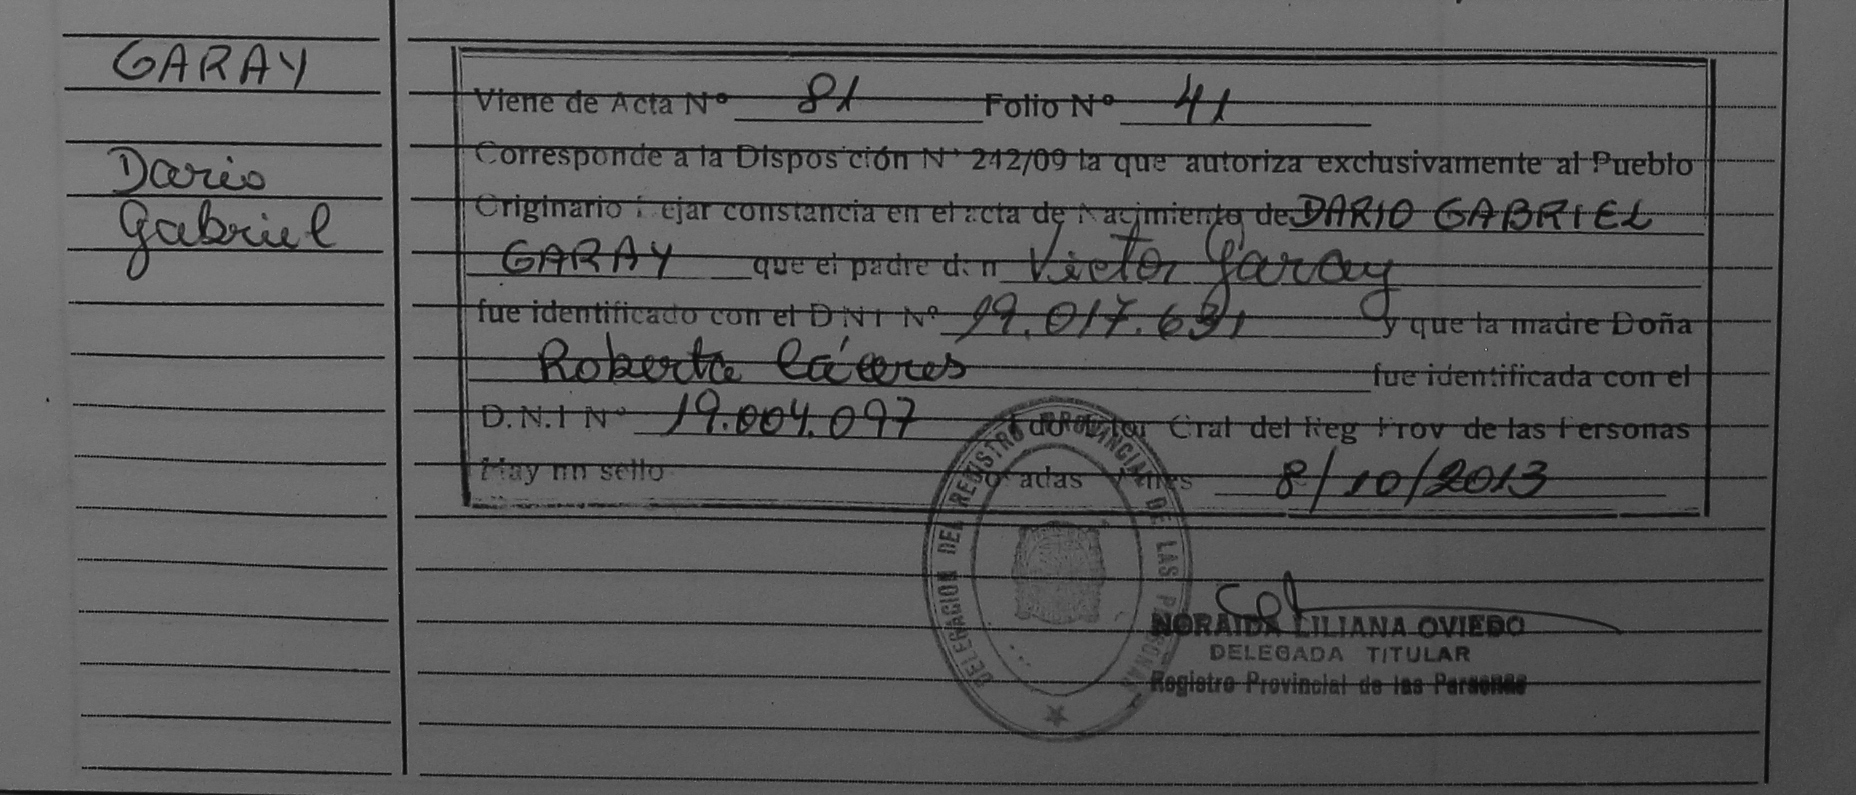 GARAY
Dario
Gabriel
Viene de Acta Nº 81 Folio Nº 41
Corresponde a la Disposición Nº 242/09 la que autoriza exclusivamente al Pueblo
Originario dejar constancia en el acta de Nacimiento de DARIO GABRIEL
GARAY que el padre don Victor Garay
fue identificado con el D N I Nº y que la madre Doña
Roberta Cáceres fue identificada con el
D.N.I Nº 19.004.097 Gral del Reg Prov de las Personas
Hay un sello Posadas Mnes 8/10/2013
DELEGACION DEL REGISTRO PROVINCIAL DE LAS PERSONAS
NORAIDA LILIANA OVIEDO
DELEGADA TITULAR
Registro Provincial de las Personas